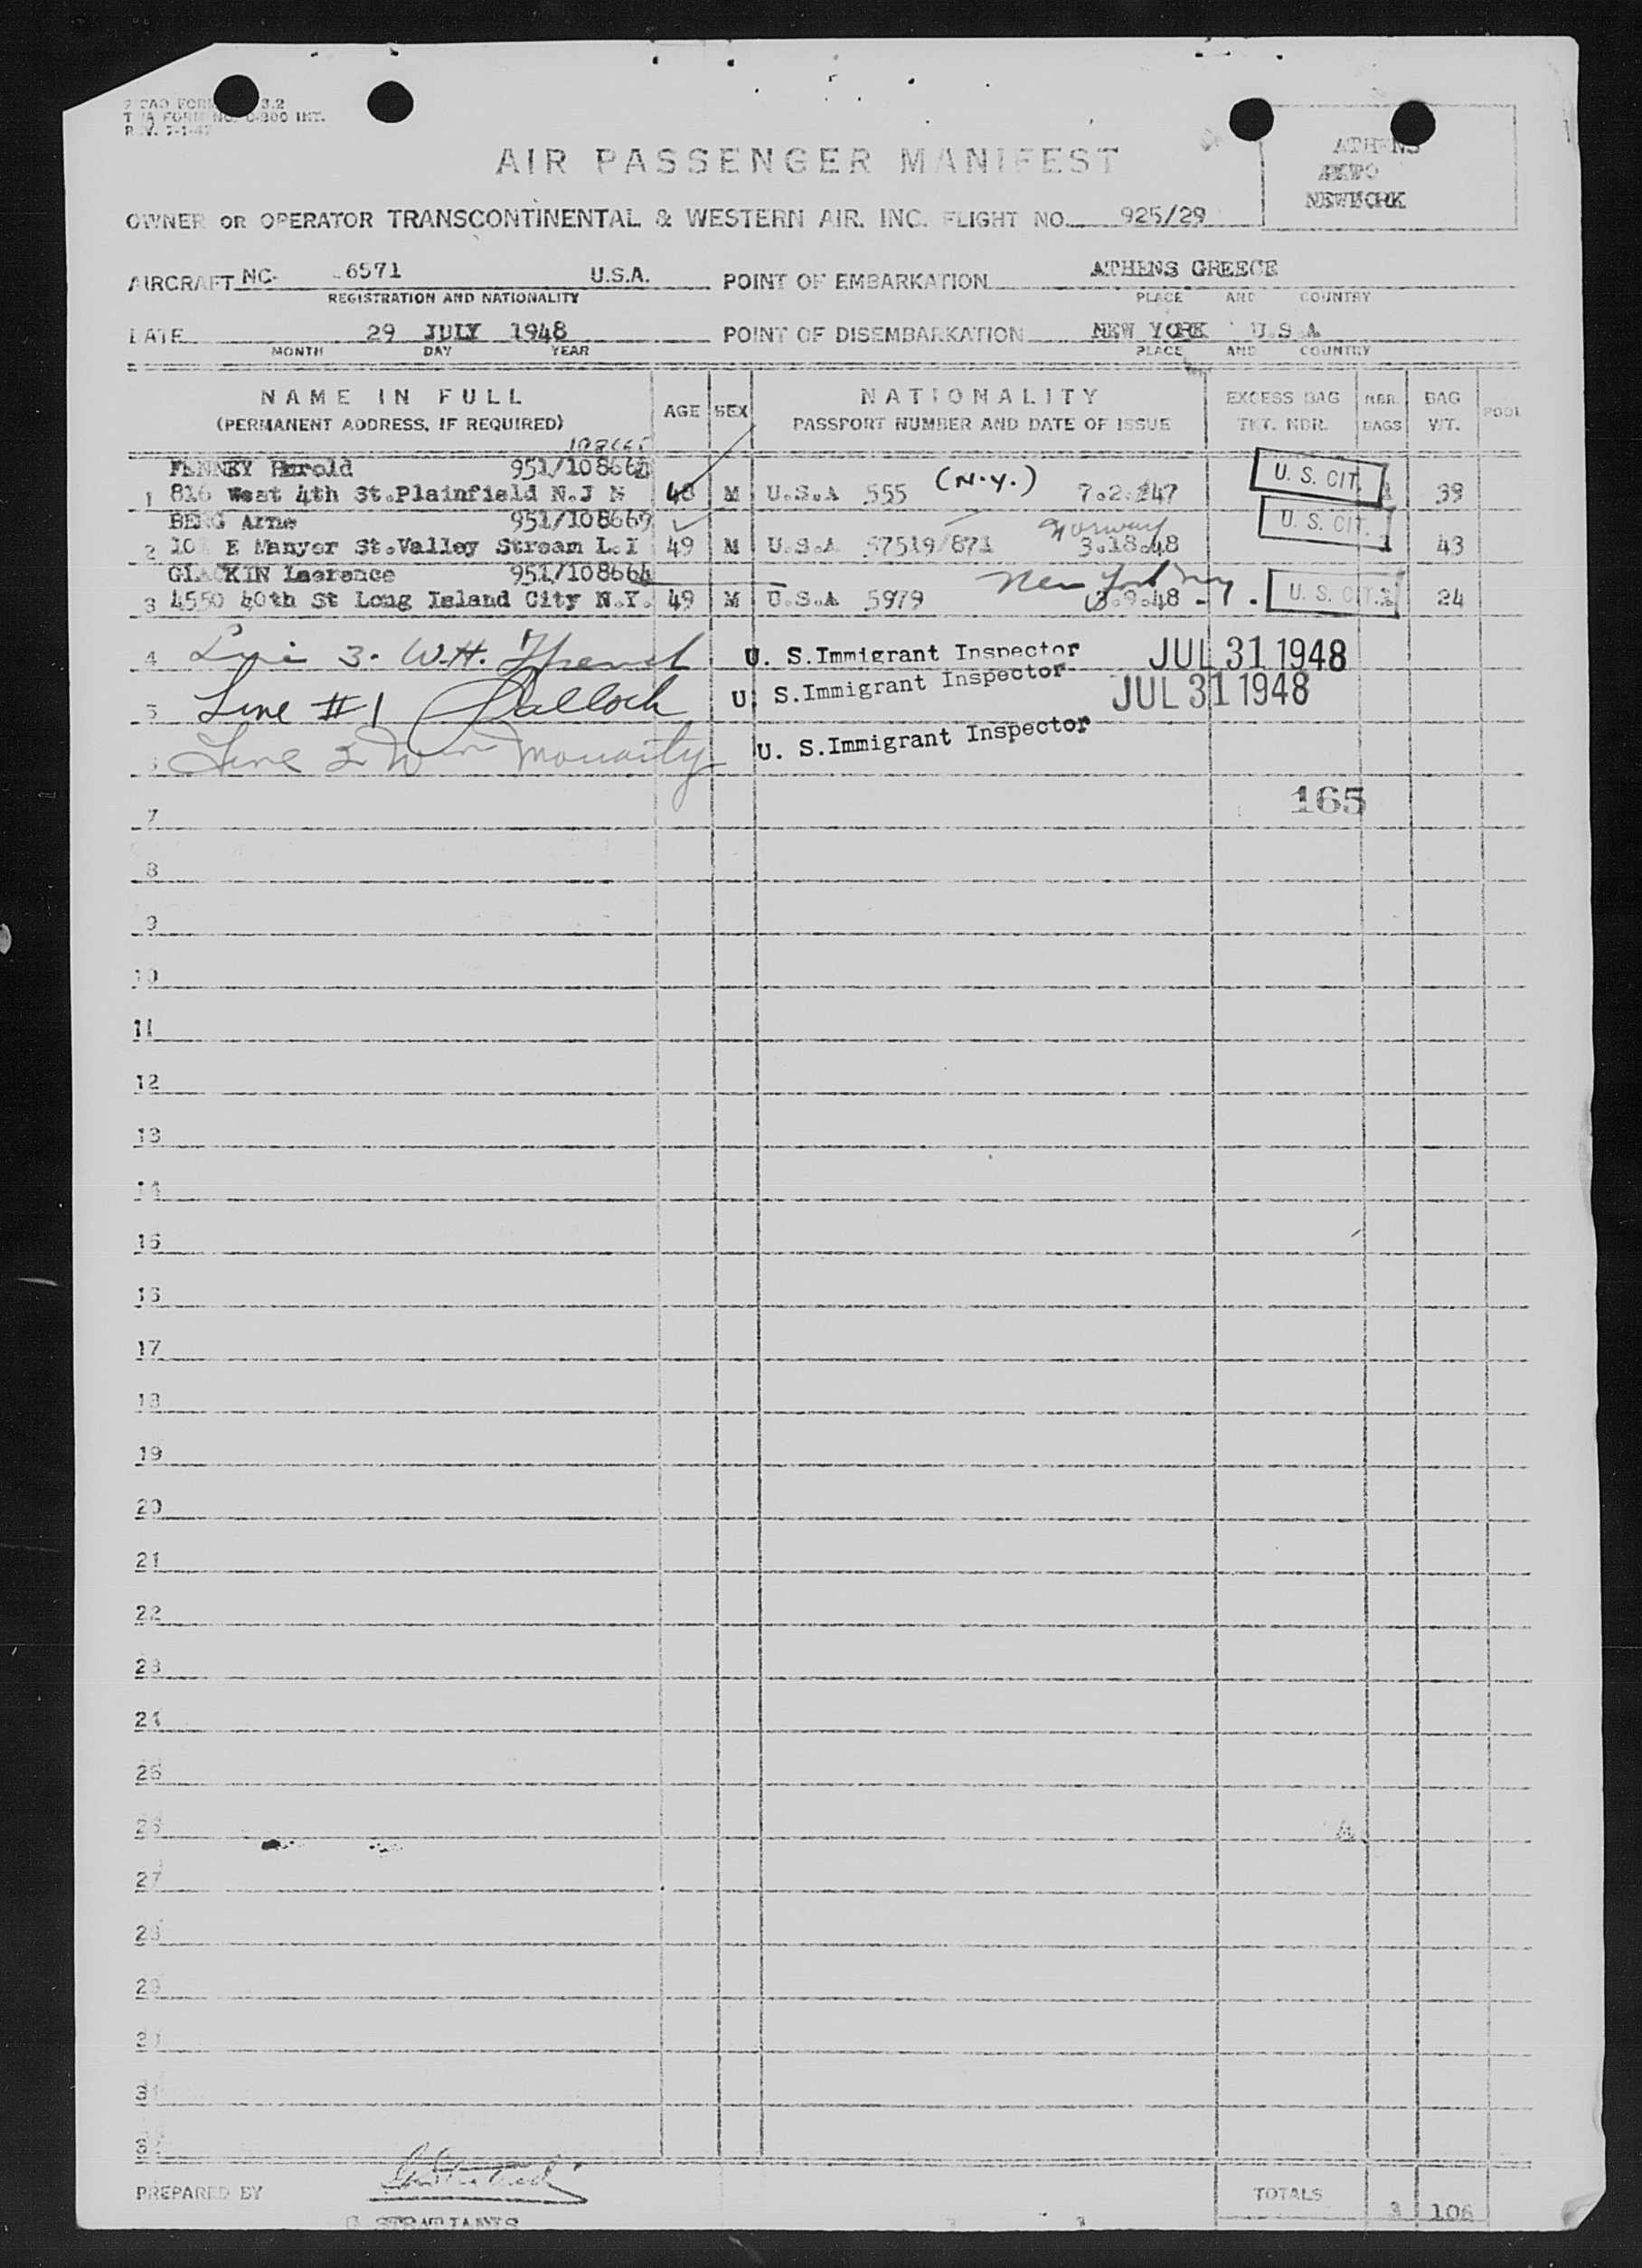 AIR PASSENGER MANIFEST
OWNER OR OPERATOR TRANSCONTINENTAL & WESTERN AIR. INC. FLIGHT NO. 925/29
AIRCRAFT NC- 6571 U.S.A. POINT OF EMBARKATION ATHENS GREECE
REGISTRATION AND NATIONALITY PLACE AND COUNTRY
DATE 29 JULY 1948 POINT OF DISEMBARKATION NEW YORK U.S.A
MONTH DAY YEAR PLACE AND COUNTRY
NAME IN FULL AGE SEX NATIONALITY EXCESS BAG NBR. BAG POOL
(PERMANENT ADDRESS, IF REQUIRED) PASSPORT NUMBER AND DATE OF ISSUE TKT. NBR. BAGS WT.
108665
Harold 951/108664 U. S. CIT.
1 816 West 4th St.Plainfield N.J 48 M U.S.A 555 (N.Y.) 7.2.47 39
BERG Arne 951/108669 U. S. CIT.
2 E Manyor St.Valley Stream L.I 49 M U.S.A 57519/871 Norway 3.18.48 1 43
951/108664
3 4550 40th St Long Island City N.Y. 49 M U.S.A 5979 New York 3.9.48 U. S. CIT. 24
4 Line 3. W.H. U. S. Immigrant Inspector JUL 31 1948
5 Line #1 U. S. Immigrant Inspector JUL 31 1948
6 Line 2 Wm Moriarity U. S. Immigrant Inspector
165
7
8
9
10
11
12
13
14
15
16
17
18
19
20
21
22
23
24
25
26
27
28
29
30
31
32
PREPARED BY TOTALS 3 106